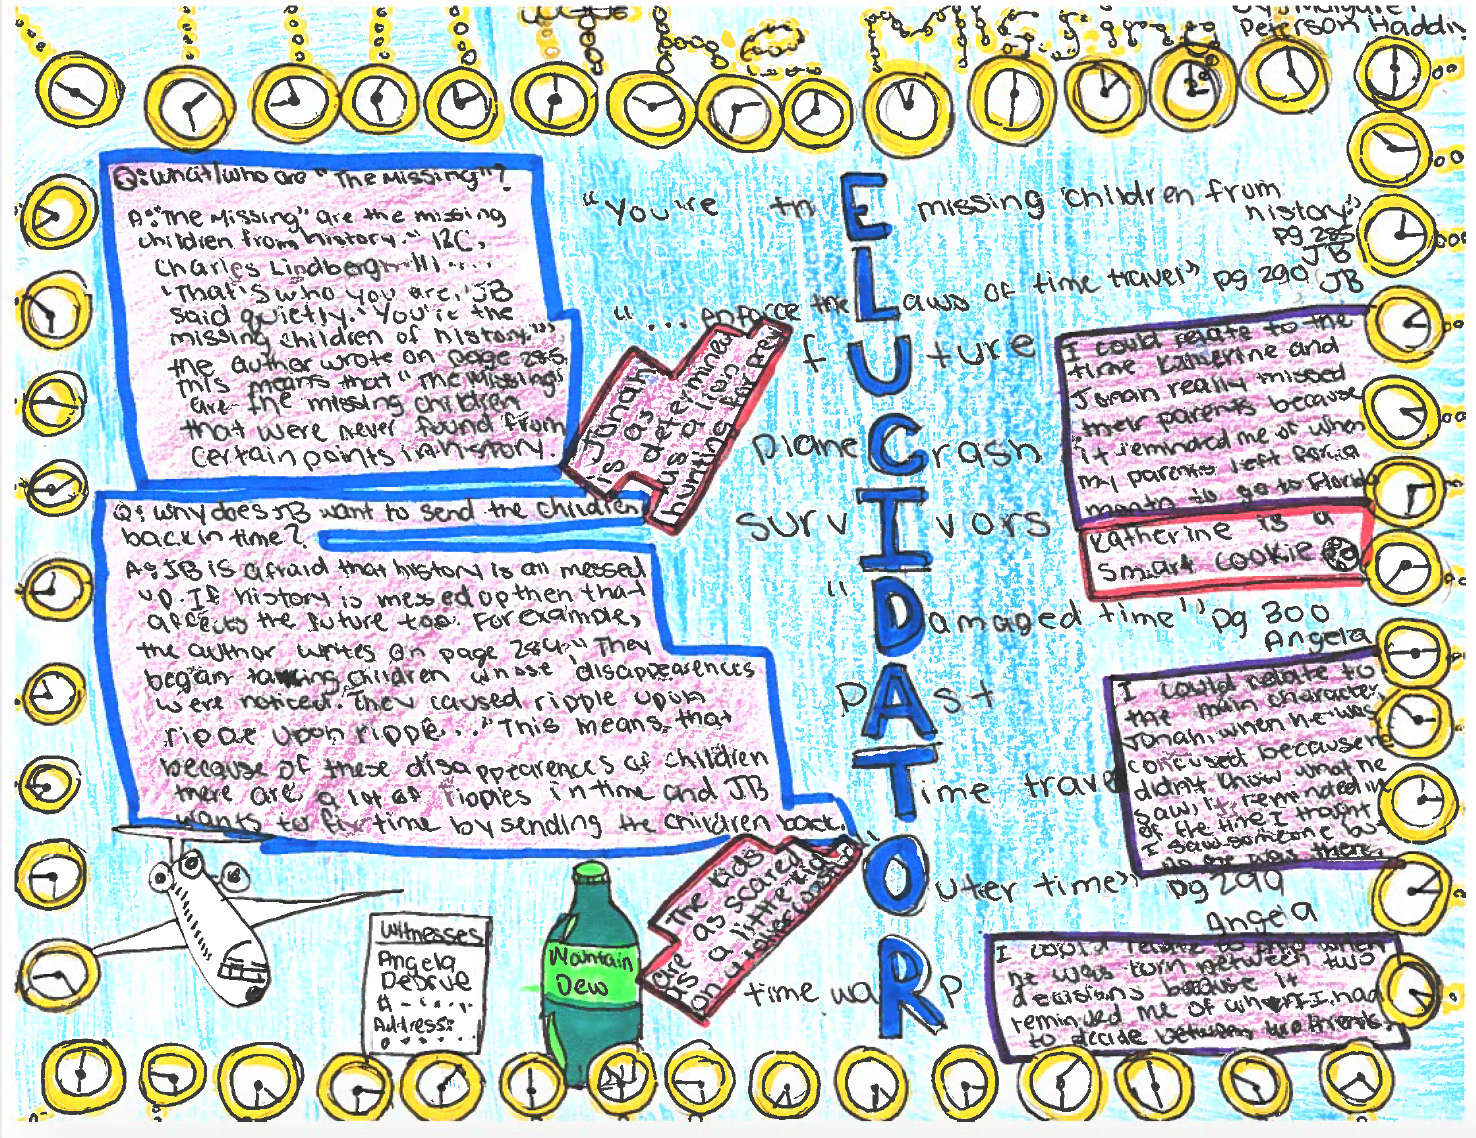 By: Margaret
Peterson Haddix
Q: What/who are "The Missing"?
A: "The Missing" are the missing
children from history." 12C,
Charles Lindbergh III....
"That's who you are," JB
said quietly. "You're the
missing children of history.""
the author wrote on page 285.
This means that "The Missing"
are the missing children
that were never found from
certain points in history.
Q: Why does JB want to send the children
back in time?
A: JB is afraid that history is all messed
up. If history is messed up then that
affects the future too. For example,
the author writes on page 284 "They
began taking children whose disappearences
were noticed. They caused ripple upon
ripple upon ripple..." This means that
because of these disappearences of children
there are a lot of ripples in time and JB
wants to fix time by sending the children back.
Jonah
is as
determined
as a lion
hunting for prey
"You're th E missing children from
history."
pg 285
JB
"... enforce the Laws of time travel" pg 290 JB
fUture
plane Crash
survIvors
"Damaged time" pg 300
Angela
pAst
Time trave
"Outer time" pg 299
Angela
time waRp
I could relate to the
time Katherine and
Jonah really missed
their parents because
it reminded me of when
my parents left for a
month to go to Florida
Katherine is a
smart cookie
I could relate to
the main character,
Jonah, when he was
confused because he
didn't know what he
saw. It reminded me
of the time I thought
I saw someone but
no one was there.
I could relate to when
he was torn between two
decisions because it
reminded me of when I had
to decide between two friends.
The kids
are as scared
as a little kid
on a rollercoaster
Witnesses
Angela
DePrue
#-
Address:
Mountain
Dew